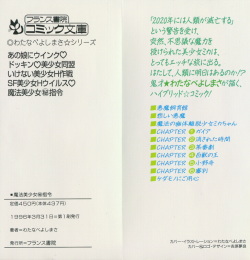 フランス書院
コミック文庫
◎わたなべよしまさ☆シリーズ
あの娘にウインク♡
ドッキン♡美少女同盟
いけない美少女H作戦
SF美少女Hウイルス♡
魔法美少女㊙指令
●魔法美少女㊙指令
定価450円(本体437円)
1996年3月31日=第1刷発行
著者=わたなべよしまさ
発行所=フランス書院
「2020年には人類が滅亡する」
という警告を受け、
突然、不思議な魔力を
授けられた美少女ミカは、
とってもエッチな娘に出る。
はたして、人類に明日はあるのか!?
鬼才★わたなべよしまさが描く、
ハイブリッド☆コミック!
悪魔飼育館
悲しい悪魔
魔法の幽体離脱少女ミカちゃん
CHAPTER
CHAPTER
CHAPTER
CHAPTER
CHAPTER 小野寺
CHAPTER 審判
ケダモノにご用心
カバー・イラストレーション=わたなべよしまさ